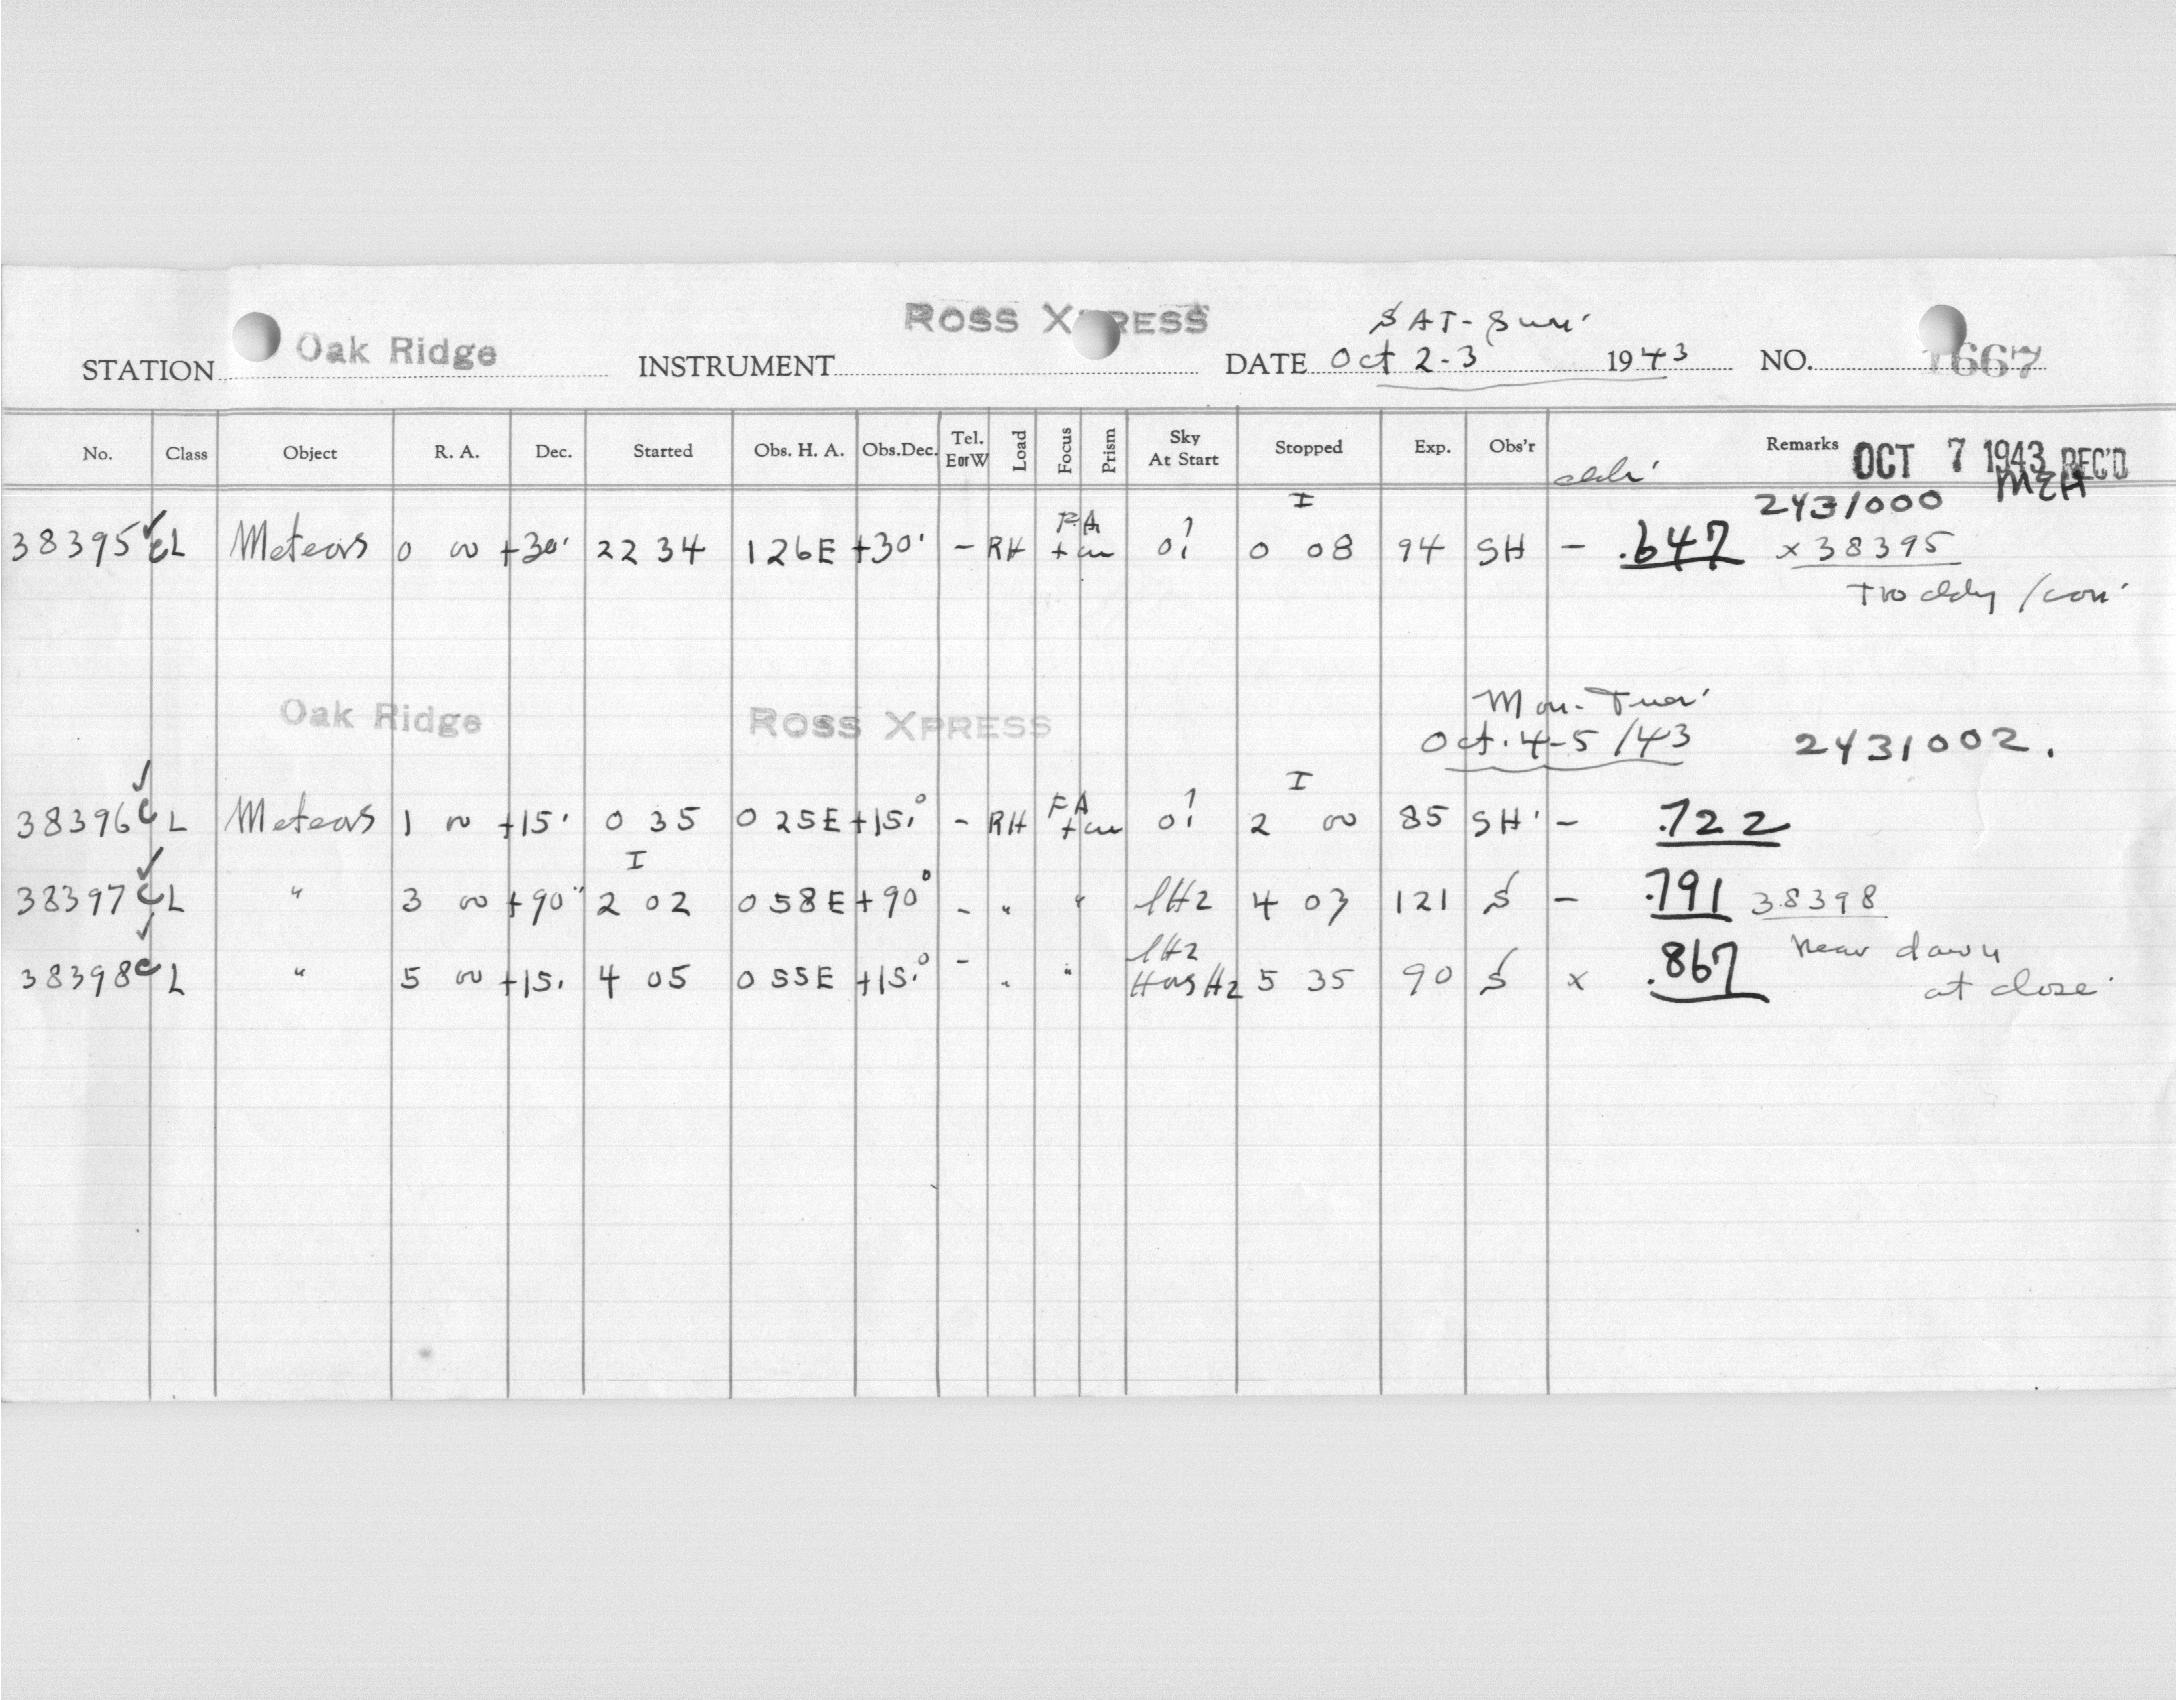 SAT-Sun.
STATION Oak Ridge INSTRUMENT ROSS XPRESS DATE Oct 2-3 1943 NO. 1667
No. Class Object R. A. Dec. Started Obs. H. A. Obs.Dec. Tel. E or W Load Focus Prism Sky At Start Stopped Exp. Obs'r Remarks OCT 7 1943 REC'D
I 2431000 MEH
38395 CL Meteors 0 00 +30° 22 34 1 26E +30° - RH FA + 0 08 94 SH - .647 x 38395
Oak Ridge ROSS XPRESS Mon-Tues
Oct. 4-5/43 2431002.
I
38396 CL Meteors 1 00 +15° 0 35 0 25E +15° - RH FA + 2 00 85 SH - .722
I
38397 CL " 3 00 +90° 2 02 0 58E +90° - " " 4 03 121 S - .791 38398
38398 CL " 5 00 +15° 4 05 0 55E +15° - " " 5 35 90 S x .867 Near dawn
at close